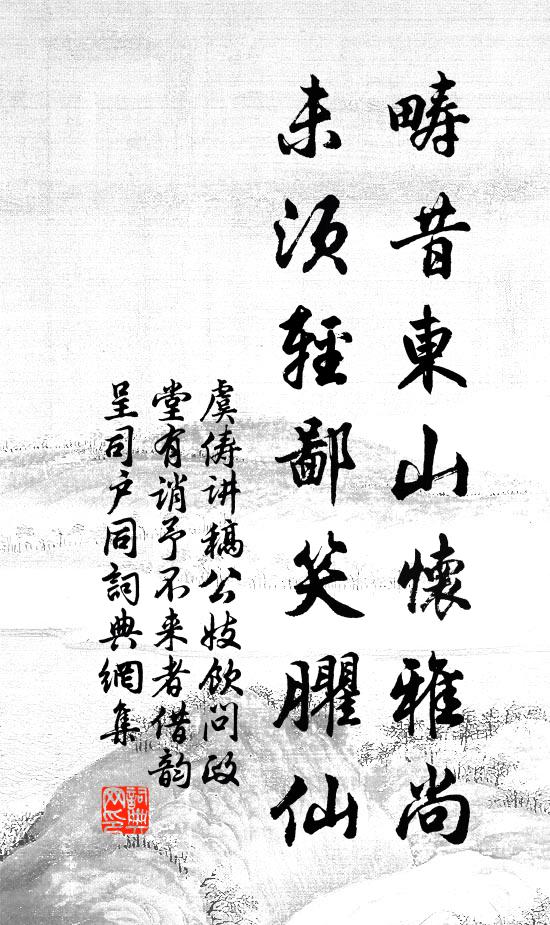 畴昔東山懷雅尚
未須輕鄙笑臞仙
虞俦讲稿公妓飲问政
堂有诮予不来者借韵
呈司户同詞典網集